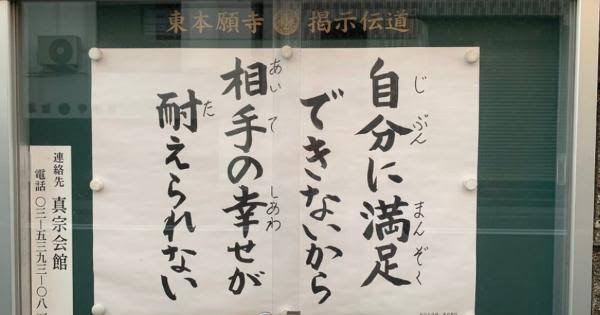 東本願寺 掲示伝道
自分に満足
じぶん まんぞく
できないから
相手の幸せが
あいて しあわ
耐えられない
た
連絡先 真宗会館
電話 〇三―五三九三―〇八